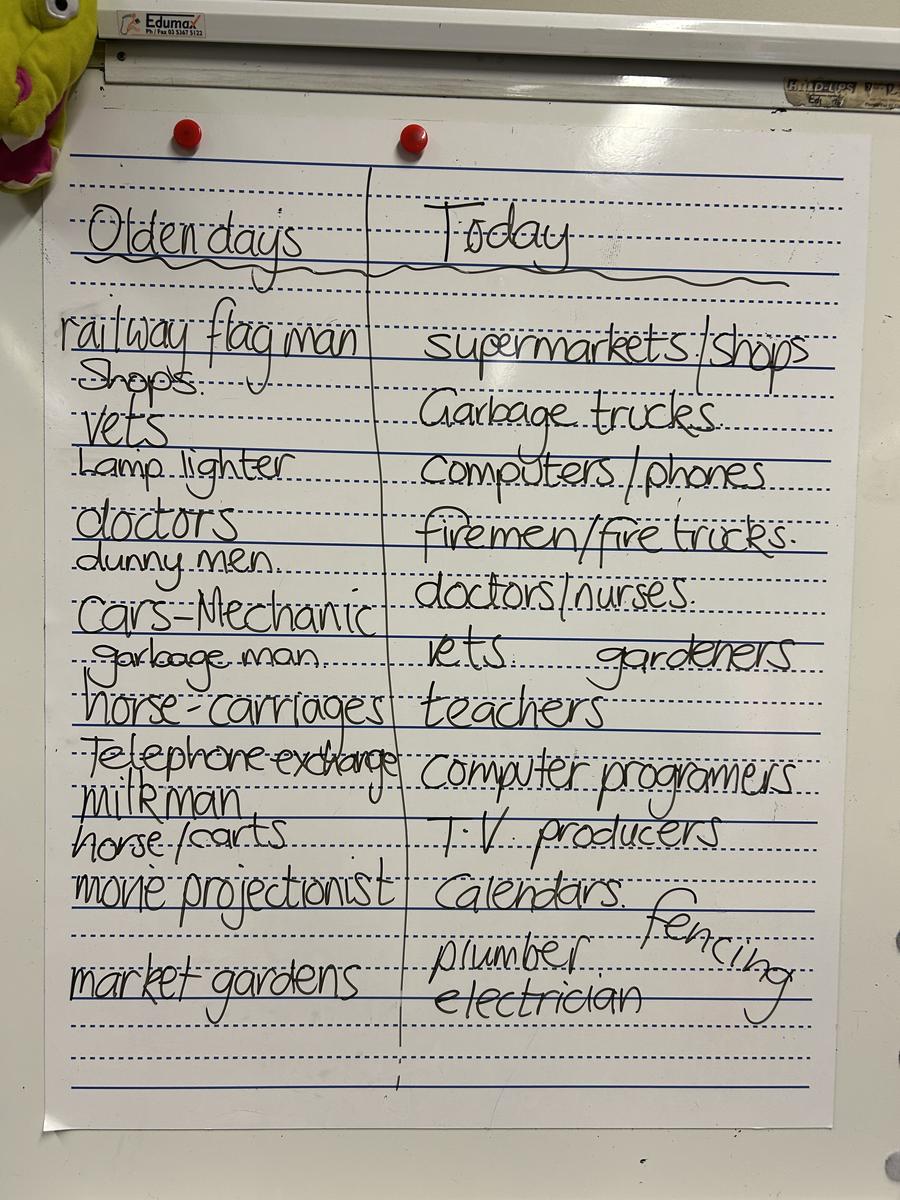 Edumax
Ph / Fax 03 5367 5122
Olden days
railway flag man
Shops.
Vets
Lamp lighter
doctors
dunny men.
Cars-Mechanic
garbage man.
horse-carriages
Telephone exchange
milkman
horse/carts
movie projectionist
market gardens
Today
supermarkets/shops
Garbage trucks.
computers/phones
firemen/fire trucks.
doctors/nurses.
vets. gardeners
teachers
computer programers
T.V. producers
Calendars.
fencing
plumber
electrician